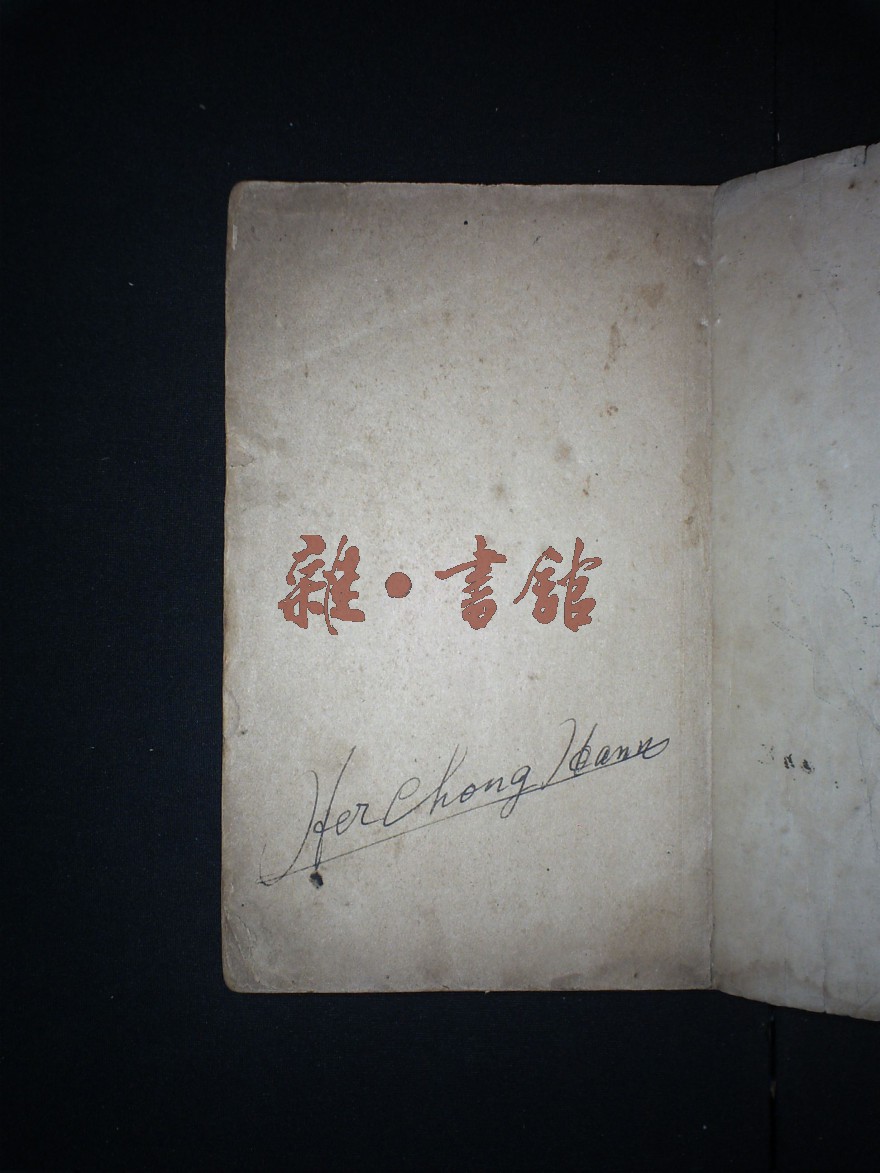 雜·書館
Her Chong Hann